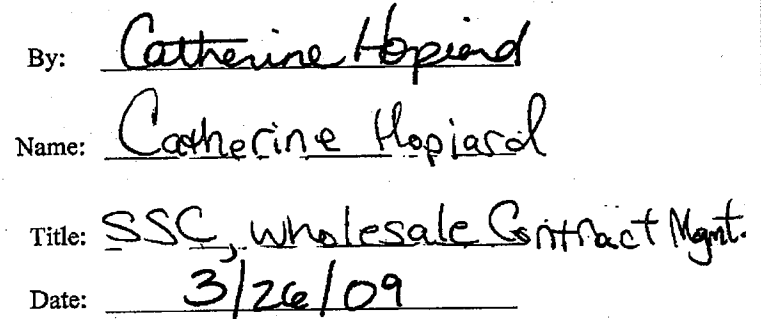 By: Catherine Hopiard
Name: Catherine Hopiard
Title: SSC, Wholesale Contract Mgmt.
Date: 3/26/09